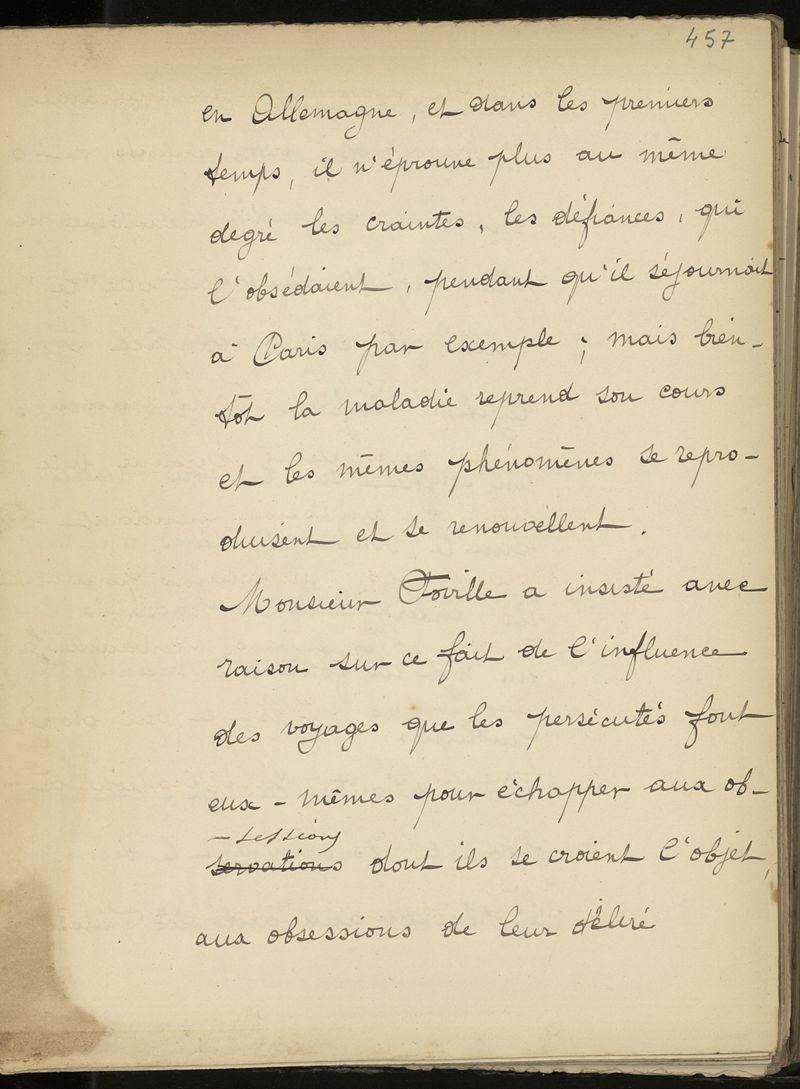 457
en Allemagne, et dans les premiers
temps, il n'éprouve plus au même
degré les craintes, les défiances, qui
l'obsédaient, pendant qu'il séjournait
à Paris par exemple ; mais bien-
tôt la maladie reprend son cours
et les mêmes phénomènes se repro-
duisent et se renouvellent.
Monsieur Foville a insisté avec
raison sur ce fait de l'influence
des voyages que les persécutés font
eux-mêmes pour échapper aux ob-
-sessions
servations dont ils se croient l'objet,
aux obsessions de leur délire